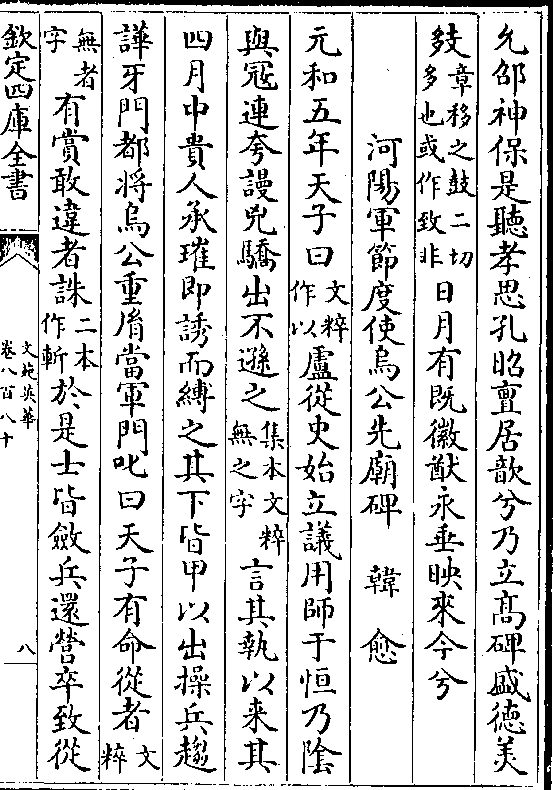 允邵神保是聽孝思孔昭亶居歆兮乃立髙碑盛德美
㩼章移之鼓二切
多也或作致非日月有既徽猷永垂映來今兮
河陽軍節度使烏公先廟碑 韓愈
元和五年天子曰文粹
作以盧從史始立議用師于恒乃陰
與冦連夸謾兇驕出不遜之集本文粹
無之字言其執以来其
四月中貴人承璀即誘而縛之其下皆甲以出操兵趨
譁牙門都将烏公重𦙍當軍門叱曰天子有命從者文
粹
無者
字有賞敢違者誅二本
作斬於是士皆斂兵還營卒致從
欽定四庫全書
文苑英華
卷八百八十
八